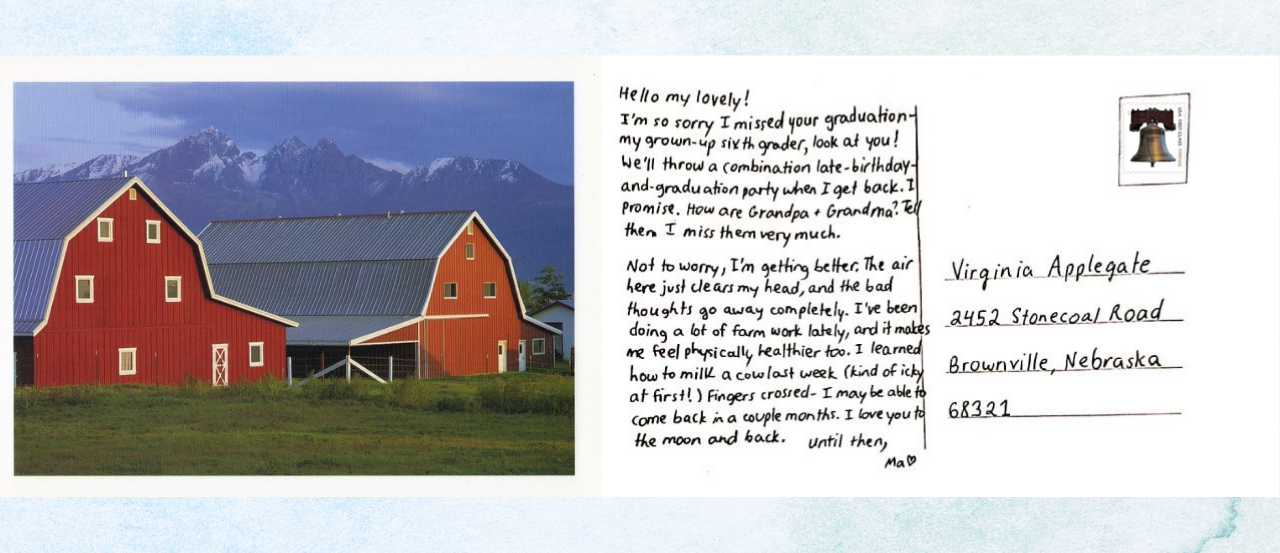 Hello my lovely!
I'm so sorry I missed your graduation-
my grown-up sixth grader, look at you!
We'll throw a combination late-birthday-
and-graduation party when I get back. I
promise. How are Grandpa + Grandma? Tell
them I miss them very much.
Not to worry, I'm getting better. The air
here just clears my head, and the bad
thoughts go away completely. I've been
doing a lot of farm work lately, and it makes
me feel physically healthier too. I learned
how to milk a cow last week (kind of icky
at first!) Fingers crossed- I may be able to
come back in a couple months. I love you to
the moon and back. until then,
Ma♡
USA FIRST-CLASS FOREVER
Virginia Applegate
2452 Stonecoal Road
Brownville, Nebraska
68321